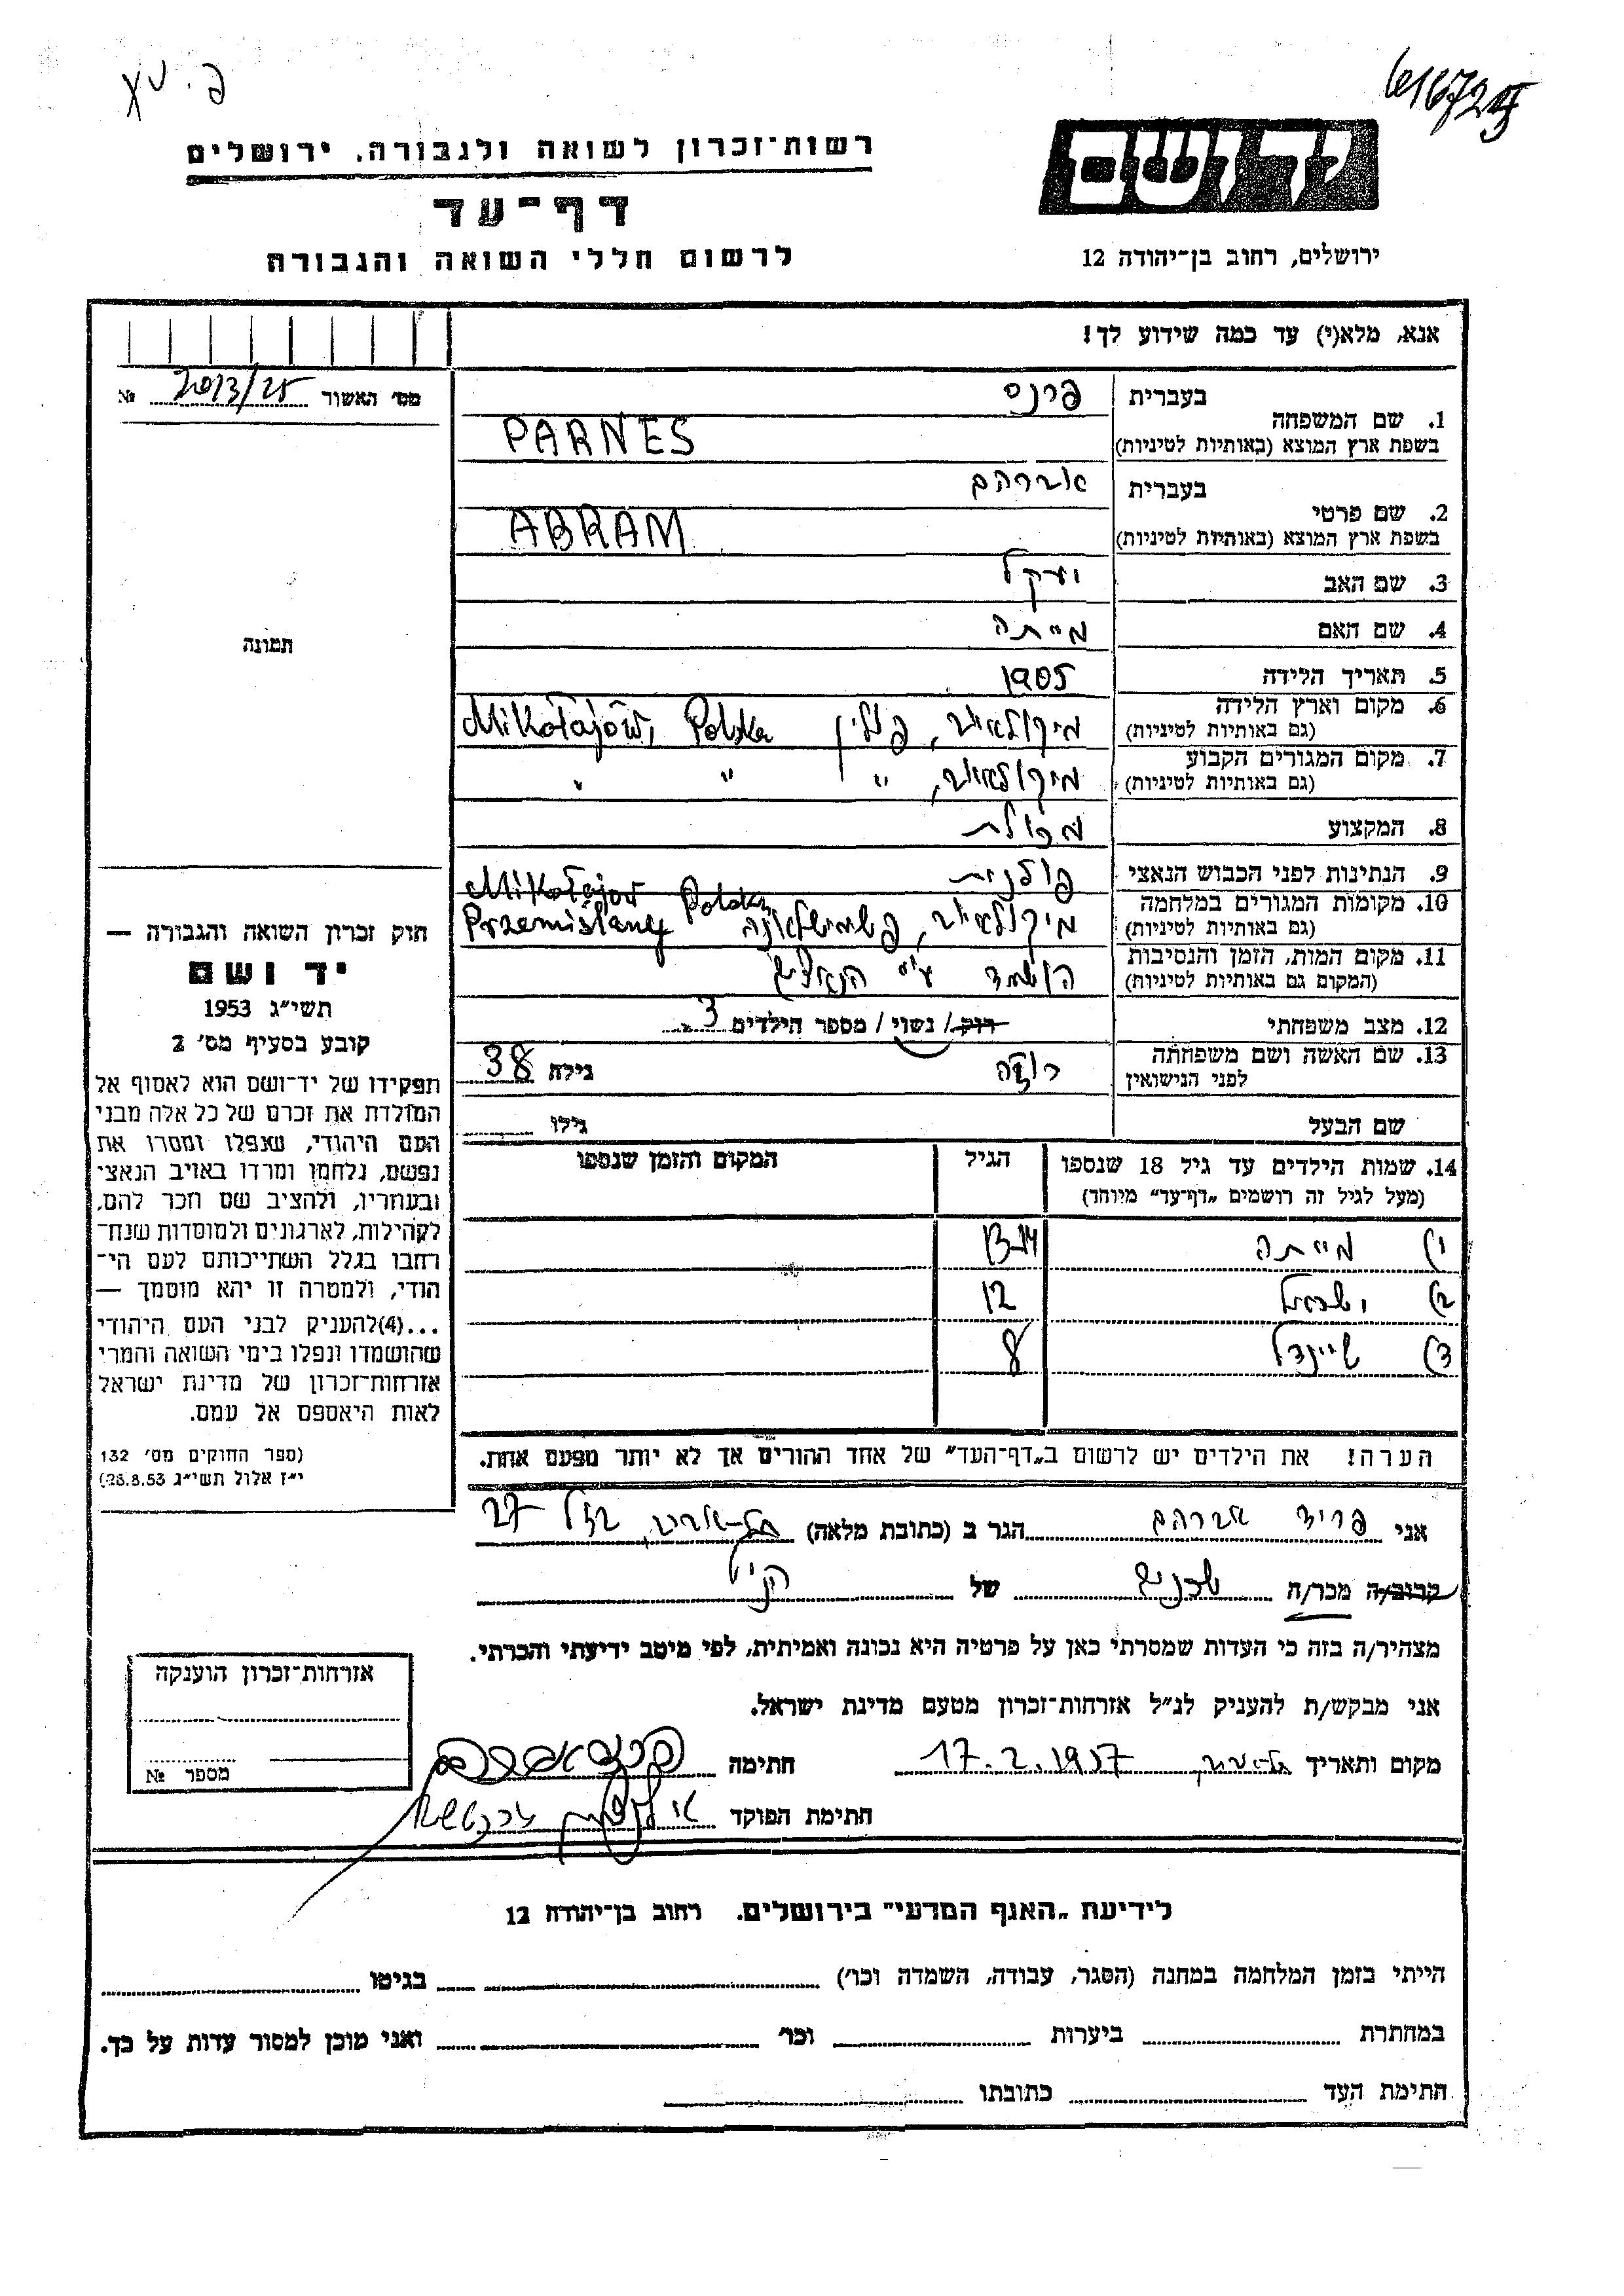 פ. טע
616724
רשות־זכרון לשואה ולגבורה. ירושלים
דף־עד
לרשום חללי השואה והגבורה
יד ושם
ירושלים, רחוב בן־יהודה 12
אנא, מלא(י) עד כמה שידוע לך!
מס' האשור 2013/25 №
תמונה
בעברית פרנס
1. שם המשפחה
בשפת ארץ המוצא (באותיות לטיניות) PARNES
בעברית אברהם
2. שם פרטי
בשפת ארץ המוצא (באותיות לטיניות) ABRAM
3. שם האב יעקל
4. שם האם מייתה
5. תאריך הלידה 1905
6. מקום וארץ הלידה מיקולאיוב, פולין Mikołajów, Polska
(גם באותיות לטיניות)
7. מקום המגורים הקבוע מיקולאיוב, " " "
(גם באותיות לטיניות)
8. המקצוע מכולת
9. הנתינות לפני הכבוש הנאצי פולנית
10. מקומות המגורים במלחמה Mikołajow Polska
(גם באותיות לטיניות) מיקולאיוב, פשמישלאנה Przemiślany
11. מקום המות, הזמן והנסיבות הושמד ע"י הנאצים
(המקום גם באותיות לטיניות)
12. מצב משפחתי רוק / נשוי / מספר הילדים 3
13. שם האשה ושם משפחתה רוזה גילה 38
לפני הנישואין
שם הבעל גילו
14. שמות הילדים עד גיל 18 שנספו הגיל המקום והזמן שנספו
(מעל לגיל זה רושמים „דף־עד" מיוחד)
1) מייתה 13-14
2) ישראל 12
3) שיינדל 8
הערה! את הילדים יש לרשום ב„דף־העד" של אחד ההורים אך לא יותר מפעם אחת.
חוק זכרון השואה והגבורה —
יד ושם
תשי"ג 1953
קובע בסעיף מס' 2
תפקידו של יד־ושם הוא לאסוף אל
המולדת את זכרם של כל אלה מבני
העם היהודי, שנפלו ומסרו את
נפשם, נלחמו ומרדו באויב הנאצי
ובעוזריו, ולהציב שם וזכר להם,
לקהילות, לארגונים ולמוסדות שנח־
רבו בגלל השתייכותם לעם הי־
הודי, ולמטרה זו יהא מוסמך —
...(4)להעניק לבני העם היהודי
שהושמדו ונפלו בימי השואה והמרי
אזרחות־זכרון של מדינת ישראל
לאות היאספם אל עמם.
(ספר החוקים מס' 132
י"ז אלול תשי"ג 28.8.53)
אני פריד אברהם הגר ב (כתובת מלאה) תל-אביב, 27
קרוב/ה מכר/ה שכנים של הנ"ל
מצהיר/ה בזה כי העדות שמסרתי כאן על פרטיה היא נכונה ואמיתית, לפי מיטב ידיעתי והכרתי.
אני מבקש/ת להעניק לנ"ל אזרחות־זכרון מטעם מדינת ישראל.
מקום ותאריך 17.2.1957 חתימה
חתימת הפוקד
אזרחות־זכרון הוענקה
מספר №
לידיעת „האגף המדעי" בירושלים. רחוב בן־יהודה 12
הייתי בזמן המלחמה במחנה (הסגר, עבודה, השמדה וכו') בגיטו
במחתרת ביערות וכו' ואני מוכן למסור עדות על כך.
חתימת העד כתובתו